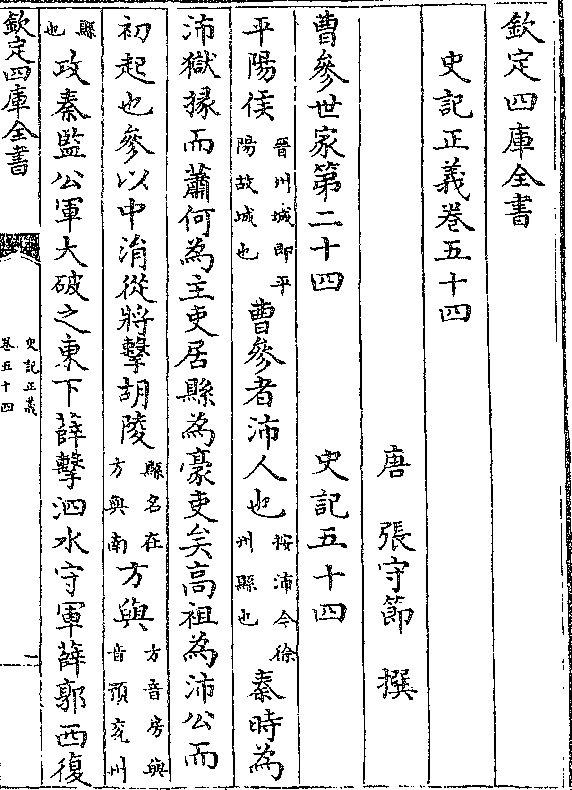 欽定四庫全書
史記正義卷五十四
唐 張守節 撰
曹參世家第二十四 史記五十四
平陽侯晉州城即平陽故城也曹參者沛人也按沛今徐州縣也秦時為
沛獄掾而蕭何為主吏居縣為豪吏矣高祖為沛公而
初起也參以中涓從將擊胡陵縣名在方與南方與方音房與音預兗州
縣也攻秦監公軍大破之東下薛擊泗水守軍薛郭西復
欽定四庫全書
史記正義
卷五十四
一